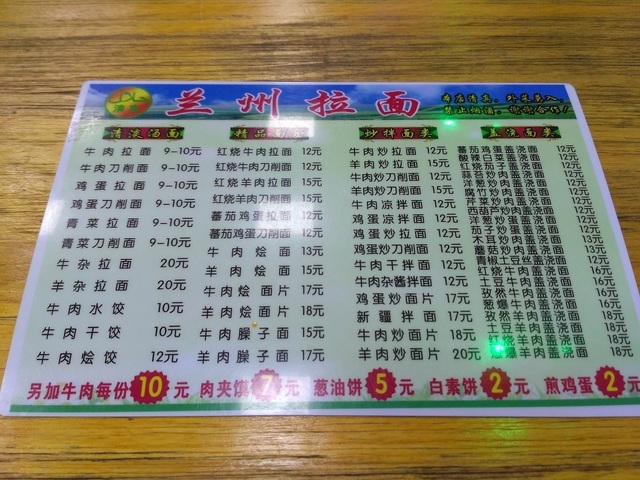 兰州拉面
本店清真，外菜莫入
禁止烟酒，谢谢合作！
清淡汤面
牛肉拉面 9-10元
牛肉刀削面 9-10元
鸡蛋拉面 9-10元
鸡蛋刀削面 9-10元
青菜拉面 9-10元
青菜刀削面 9-10元
牛杂拉面 20元
羊杂拉面 20元
牛肉水饺 10元
牛肉干饺 10元
牛肉烩饺 12元
精品面类
红烧牛肉拉面 12元
红烧牛肉刀削面 12元
红烧羊肉拉面 15元
红烧羊肉刀削面 15元
蕃茄鸡蛋拉面 12元
蕃茄鸡蛋刀削面 12元
牛肉烩面 13元
羊肉烩面 15元
牛肉烩面片 17元
羊肉烩面片 18元
牛肉臊子面 15元
羊肉臊子面 17元
炒拌面类
牛肉炒拉面 12元
羊肉炒拉面 15元
牛肉炒刀削面 12元
羊肉炒刀削面 15元
牛肉凉拌面 12元
鸡蛋凉拌面 12元
鸡蛋炒拉面 12元
鸡蛋炒刀削面 12元
牛肉干拌面 12元
牛肉杂酱拌面 12元
鸡蛋炒面片 17元
新疆拌面 17元
牛肉炒面片 18元
羊肉炒面片 20元
盖浇面类
蕃茄鸡蛋盖浇面 12元
酸辣白菜盖浇面 12元
红烧茄子盖浇面 12元
蒜苔炒肉盖浇面 12元
洋葱炒肉盖浇面 12元
腐竹炒肉盖浇面 12元
芹菜炒肉盖浇面 12元
西葫芦炒肉盖浇面 12元
洋葱炒蛋盖浇面 12元
茄子炒蛋盖浇面 12元
木耳炒肉盖浇面 13元
蘑菇炒肉盖浇面 13元
青椒土豆丝盖浇面 12元
红烧牛肉盖浇面 16元
土豆牛肉盖浇面 16元
孜然牛肉盖浇面 16元
葱爆牛肉盖浇面 16元
孜然羊肉盖浇面 18元
土豆羊肉盖浇面 18元
红烧羊肉盖浇面 18元
爆羊肉盖浇面 18元
另加牛肉每份10元 肉夹馍7元 葱油饼5元 白素饼2元 煎鸡蛋2元